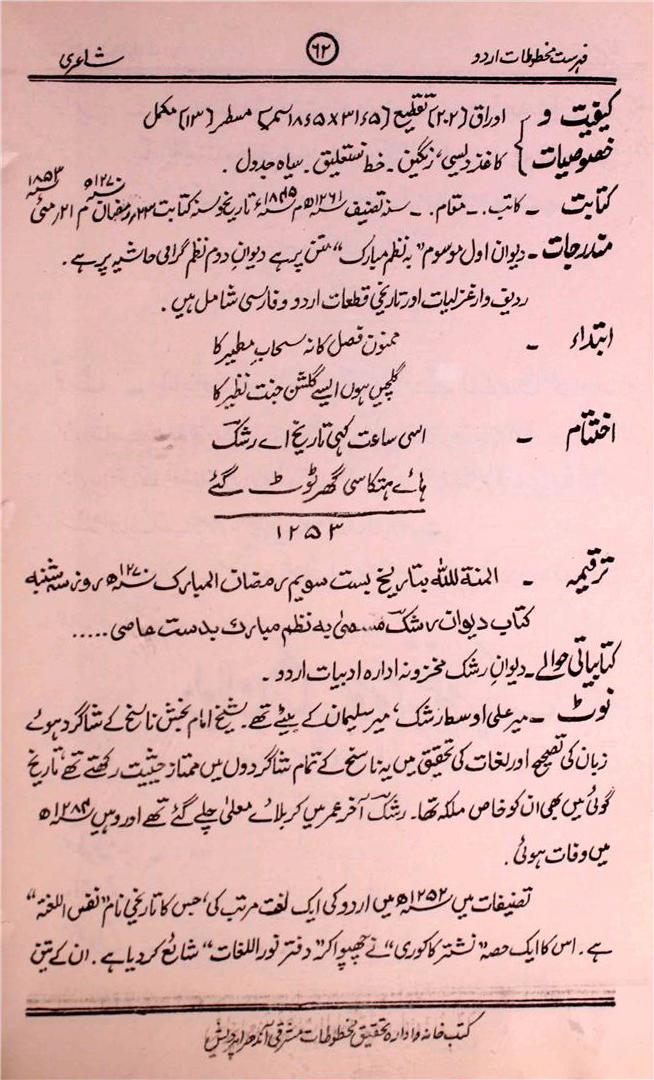 فہرست مخطوطات اردو ۶۲ شاعری
کیفیت و خصوصیات } اوراق (۲۰۲) تقطیع (۳۱۶۵×۱۸۶۵سم) مسطر (۱۳) مکمل
کاغذ دیسی، رنگین ۔ خط نستعلیق ۔ سیاہ جدول ۔
کتابت ۔ کاتب ۔۔ مقام ۔۔ سنہ تصنیف ۱۲۶۱ھ م ۱۸۴۵ء تاریخ و سنہ کتابت ۲۳ رمضان ۱۲۷۰ھ م ۲۱ مئی ۱۸۵۳ء
مندرجات ۔ دیوان اول موسوم ”بہ نظم مبارک“ متن پر ہے دیوانِ دوم نظم گرامی حاشیہ پر ہے ۔
ردیف وار غزلیات اور تاریخی قطعات اردو و فارسی شامل ہیں ۔
ابتداء ۔ ممنون فصل کا نہ سحابِ مطیر کا
گلچیں ہوں ایسے گلشن جنت نظیر کا
اختتام ۔ اسی ساعت کہی تاریخ اے رشکؔ
ہائے ہتکا سی گھر ٹوٹ گئے
۱۲۵۳
ترقیمہ ۔ المنۃ للہ بتاریخ بست سویم رمضان المبارک ۱۲۷۰ھ روز سہ شنبہ
کتاب دیوان رشکؔ مسمیٰ بہ نظم مبارک بدست حاصی .....
کتابیاتی حوالے ۔ دیوانِ رشک مخزونہ ادارہ ادبیات اردو ۔
نوٹ ۔ میر علی اوسط رشک، میر سلیمان کے بیٹے تھے ۔ شیخ امام بخش ناسخ کے شاگرد ہوئے
زبان کی تصحیح اور لغات کی تحقیق میں یہ ناسخ کے تمام شاگردوں میں ممتاز حیثیت رکھتے تھے، تاریخ
گوئی میں بھی ان کو خاص ملکہ تھا ۔ رشکؔ آخر عمر میں کربلائے معلیٰ چلے گئے تھے اور وہیں ۱۲۸۴ھ
میں وفات ہوئی ۔
تصنیفات میں ۱۲۵۲ھ میں اردو کی ایک لغت مرتب کی، جس کا تاریخی نام ”نفس اللغۃ“
ہے ۔ اس کا ایک حصہ ”نشتر کاکوری“ نے چھپوا کر ”دفتر نور اللغات“ شائع کر دیا ہے ۔ ان کے تین
کتب خانہ و ادارہ تحقیق مخطوطات مشرقی آندھرا پردیش